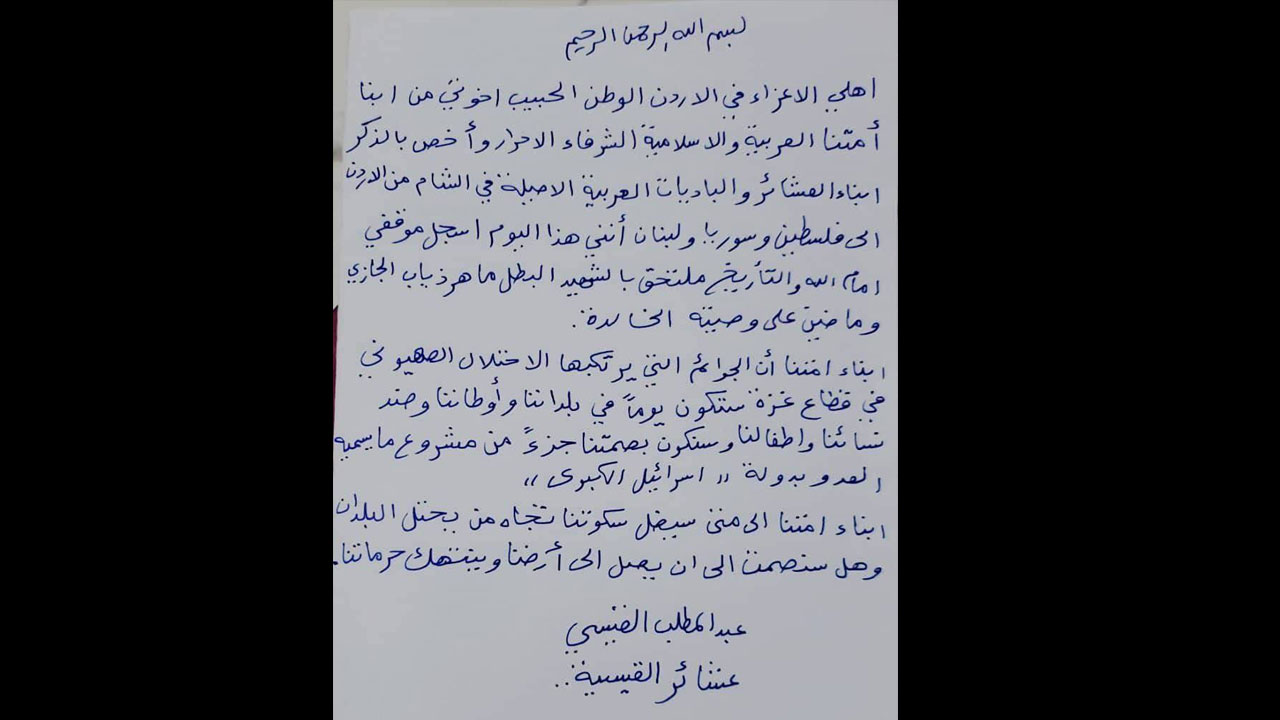 بسم الله الرحمن الرحيم
اهلي الاعزاء في الاردن الوطن الحبيب اخوتي من ابنا
أمتنا العربية والاسلامية الشرفاء الاحرار وأخص بالذكر
ابناء العشائر والباديات العربية الاصيلة في الشام من الاردن
الى فلسطين وسوريا ولبنان أنني هذا اليوم اسجل موقفي
امام الله والتأريخ ملتحق بالشهيد البطل ماهر ذياب الجازي
وماضين على وصيته الخالدة.
ابناء امتنا أن الجرائم التي يرتكبها الاحتلال الصهيوني
في قطاع غزة ستكون يوماً في بلداننا وأوطاننا وضد
نسائنا واطفالنا وسنكون بصمتنا جزءً من مشروع مايسميه
العدو بدولة " اسرائيل الكبرى "
ابناء امتنا الى متى سيضل سكوتنا تجاه من يحتل البلدان
وهل سنصمت الى ان يصل الى أرضنا وينتهك حرماتنا.
عبدالمطلب القيسي
عشائر القيسية..